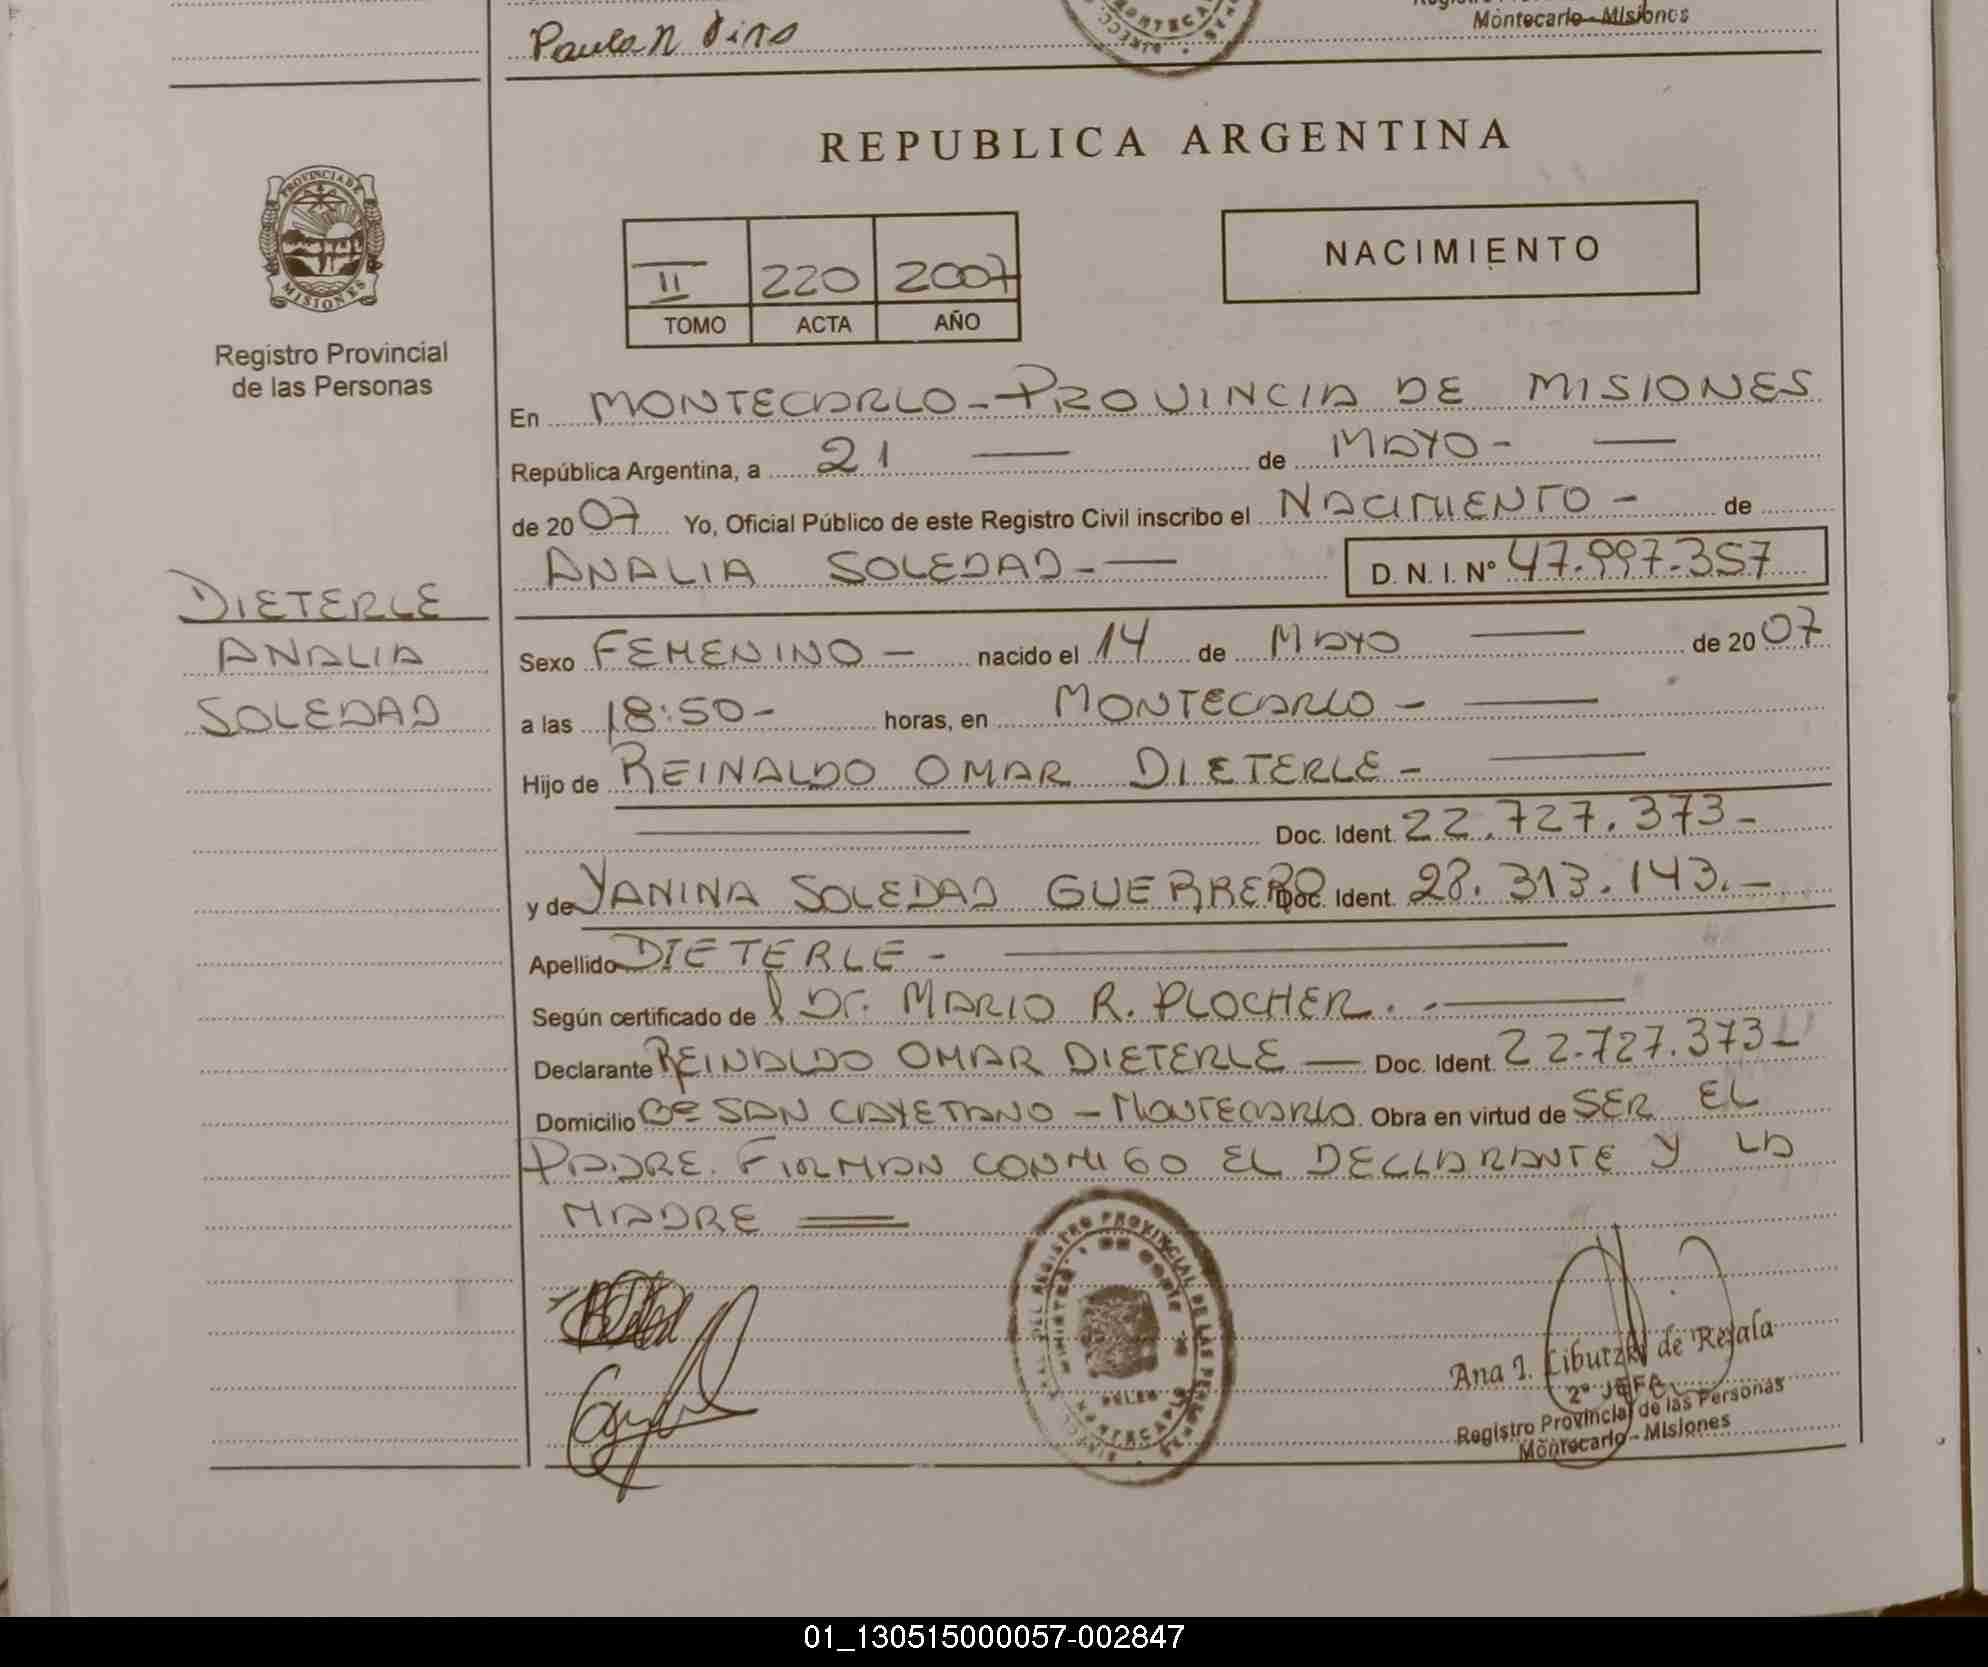 Paula N Dins
Montecarlo - Misiones
PROVINCIA DE
MISIONES
Registro Provincial
de las Personas
REPUBLICA ARGENTINA
II 220 2007
TOMO ACTA AÑO
NACIMIENTO
En MONTECARLO - PROVINCIA DE MISIONES
República Argentina, a 21 — de MAYO - —
de 2007 Yo, Oficial Público de este Registro Civil inscribo el NACIMIENTO - de
ANALIA SOLEDAD - — D. N. I. Nº 47.997.357
DIETERLE
ANALIA
SOLEDAD
Sexo FEMENINO - nacido el 14 de MAYO — de 2007
a las 18:50 - horas, en MONTECARLO - —
Hijo de REINALDO OMAR DIETERLE - —
— Doc. Ident. 22.727.373 -
y de YANINA SOLEDAD GUERRERO Doc. Ident. 28.313.143. -
Apellido DIETERLE - —
Según certificado de l Dr. MARIO R. PLOCHER. - —
Declarante REINALDO OMAR DIETERLE — Doc. Ident. 22.727.373 -
Domicilio Bº SAN CAYETANO - MONTECARLO. Obra en virtud de SER EL
PADRE. FIRMAN CONMIGO EL DECLARANTE Y LA
MADRE =
REGISTRO PROVINCIAL DE LAS PERSONAS
Ana I. Liburzki de Rejala
2º JEFA
Registro Provincial de las Personas
Montecarlo - Misiones
01_130515000057-002847